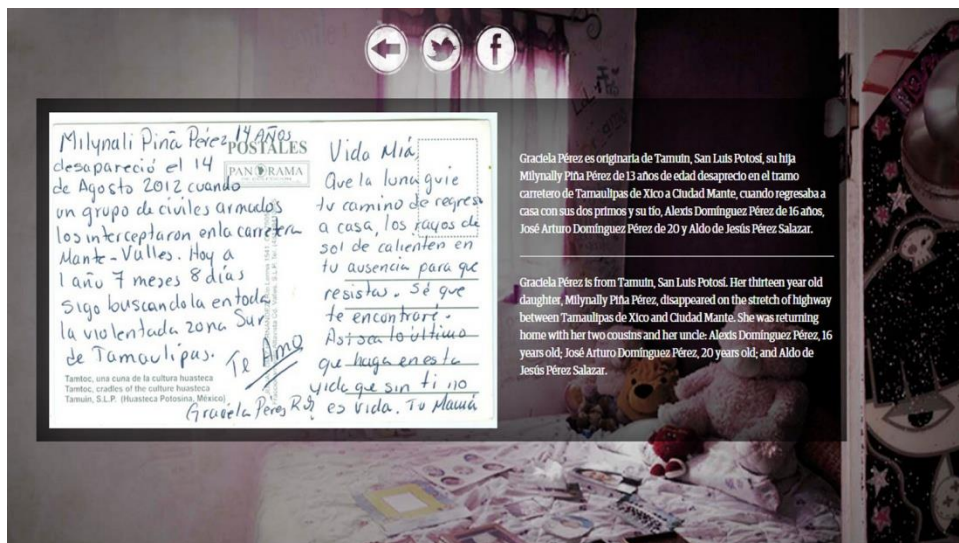 Milynali Piña Pérez 14 AÑOS
desapareció el 14
de Agosto 2012 cuando
un grupo de civiles armados
los interceptaron en la carretera
Mante-Valles. Hoy a
1 año 7 meses 8 días
sigo buscandola en toda
la violentada zona Sur
de Tamaulipas.
Te Amo
POSTALES
PANORAMA
Tamtoc, una cuna de la cultura huasteca
Tamtoc, cradles of the culture huasteca
Tamuin, S.L.P. (Huasteca Potosina, México)
Graciela Perez R
Vida Mia,
Que la luna guie
tu camino de regreso
a casa, los rayos de
sol de calienten en
tu ausencia para que
resistas. Sé que
te encontraré.
Asi sea lo último
que haga en esta
vida que sin ti no
es vida. Tu Mamá
Graciela Pérez es originaria de Tamuin, San Luis Potosí, su hija
Milynally Piña Pérez de 13 años de edad desaprecio en el tramo
carretero de Tamaulipas de Xico a Ciudad Mante, cuando regresaba a
casa con sus dos primos y su tio, Alexis Domínguez Pérez de 16 años,
José Arturo Domínguez Pérez de 20 y Aldo de Jesús Pérez Salazar.
Graciela Pérez is from Tamuin, San Luis Potosí. Her thirteen year old
daughter, Milynally Piña Pérez, disappeared on the stretch of highway
between Tamaulipas de Xico and Ciudad Mante. She was returning
home with her two cousins and her uncle: Alexis Domínguez Pérez, 16
years old; José Arturo Domínguez Pérez, 20 years old; and Aldo de
Jesús Pérez Salazar.